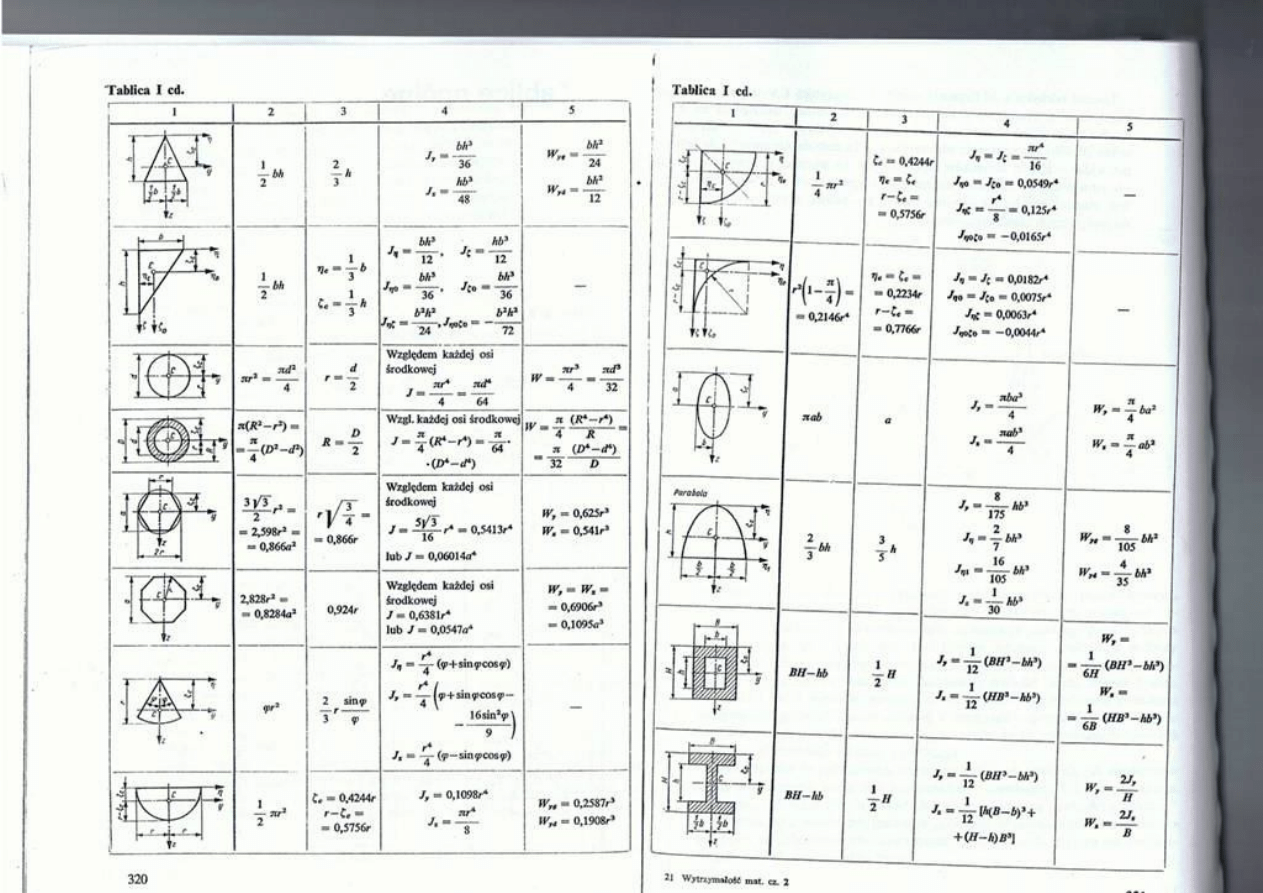 Tablica I cd.
1 2 3 4 5
1/2 bh
2/3 h
J_y = bh³/36
J_z = hb³/48
W_yg = bh²/24
W_yd = bh²/12
1/2 bh
η_c = 1/3 b
ζ_c = 1/3 h
J_η = bh³/12, J_ζ = hb³/12
J_η0 = bh³/36, J_ζ0 = bh³/36
J_ηζ = b²h²/24, J_η0ζ0 = − b²h²/72
—
πr² = πd²/4
r = d/2
Względem każdej osi
środkowej
J = πr⁴/4 = πd⁴/64
W = πr³/4 = πd³/32
π(R²−r²) =
= π/4 (D²−d²)
R = D/2
Wzgl. każdej osi środkowej
J = π/4 (R⁴−r⁴) = π/64 ·
·(D⁴−d⁴)
W = π/4 (R⁴−r⁴)/R =
= π/32 (D⁴−d⁴)/D
3√3/2 r² =
= 2,598r² =
= 0,866a²
r√(3/4) =
= 0,866r
Względem każdej osi
środkowej
J = 5√3/16 r⁴ = 0,5413r⁴
lub J = 0,06014a⁴
W_y = 0,625r³
W_z = 0,541r³
2,828r² =
= 0,8284a²
0,924r
Względem każdej osi
środkowej
J = 0,6381r⁴
lub J = 0,0547a⁴
W_y = W_z =
= 0,6906r³
= 0,1095a³
φr²
2/3 r sinφ/φ
J_η = r⁴/4 (φ+sinφcosφ)
J_y = r⁴/4 (φ+sinφcosφ−
− 16sin²φ/9)
J_z = r⁴/4 (φ−sinφcosφ)
—
1/2 πr²
ζ_c = 0,4244r
r−ζ_c =
= 0,5756r
J_y = 0,1098r⁴
J_z = πr⁴/8
W_yg = 0,2587r³
W_yd = 0,1908r³
320
Tablica I cd.
1 2 3 4 5
1/4 πr²
ζ_c = 0,4244r
η_c = ζ_c
r−ζ_c =
= 0,5756r
J_η = J_ζ = πr⁴/16
J_η0 = J_ζ0 = 0,0549r⁴
J_ηζ = r⁴/8 = 0,125r⁴
J_η0ζ0 = −0,0165r⁴
—
r²(1−π/4) =
= 0,2146r⁴
η_c = ζ_c =
= 0,2234r
r−ζ_c =
= 0,7766r
J_η = J_ζ = 0,0182r⁴
J_η0 = J_ζ0 = 0,0075r⁴
J_ηζ = 0,0063r⁴
J_η0ζ0 = −0,0044r⁴
—
πab
a
J_y = πba³/4
J_z = πab³/4
W_y = π/4 ba²
W_z = π/4 ab²
Parabola
2/3 bh
3/5 h
J_y = 8/175 hb³
J_η = 2/7 bh³
J_η1 = 16/105 bh³
J_z = 1/30 hb³
W_yg = 8/105 bh²
W_yd = 4/35 bh²
BH−hb
1/2 H
J_y = 1/12 (BH³−bh³)
J_z = 1/12 (HB³−hb³)
W_y =
= 1/6H (BH³−bh³)
W_z =
= 1/6B (HB³−hb³)
BH−hb
1/2 H
J_y = 1/12 (BH³−bh³)
J_z = 1/12 [h(B−b)³+
+(H−h)B³]
W_y = 2J_y/H
W_z = 2J_z/B
21 Wytrzymałość mat. cz. 2